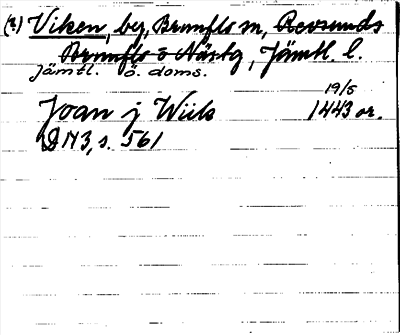 (2) Viken, by, Brunflo sn, Revsunds
Brunflo o Näskg, Jämtl. l.
Jämtl. ö. doms.
19/5
Joan j Wiik 1443 or.
DN3, s. 561